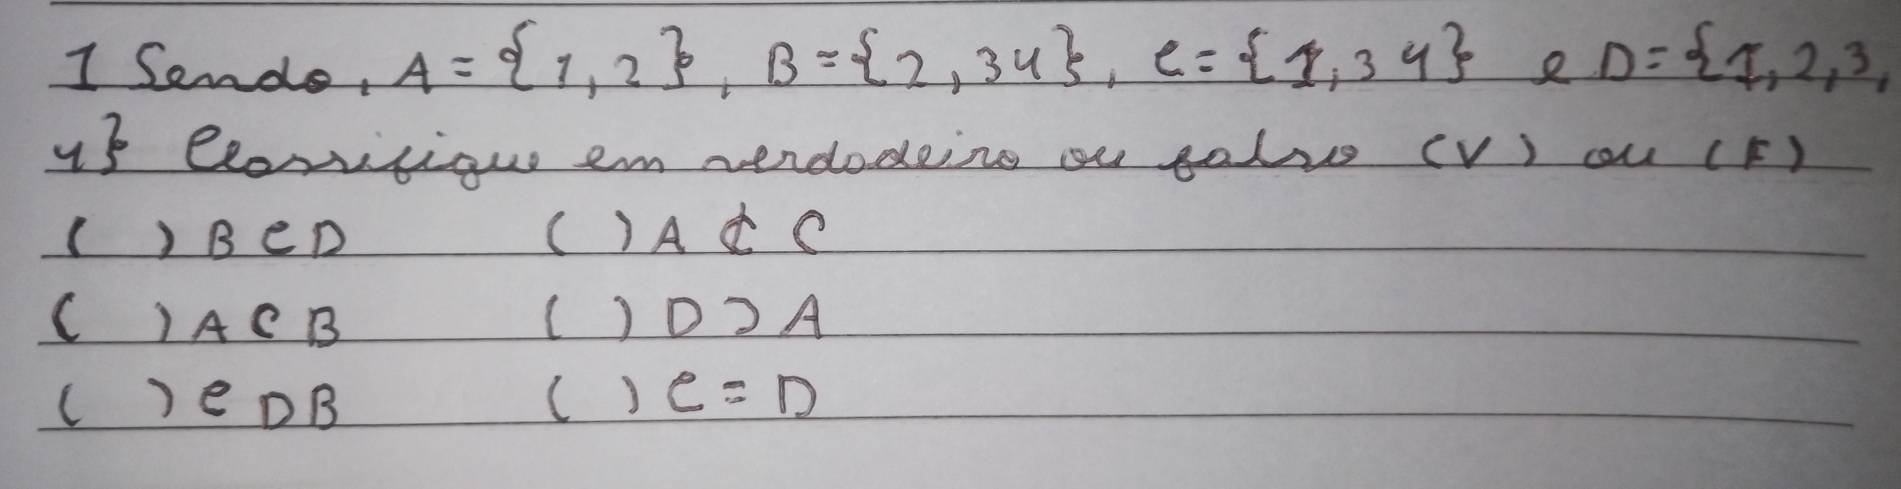 1 Sendo, A = {1, 2}, B = {2, 3 4}, C = {1, 3 4} e D = {1, 2, 3,
4} Classifique em verdadeiro ou falso (V) ou (F)
( ) B ⊂ D ( ) A ⊄ C
( ) A ⊂ B ( ) D ⊃ A
( ) C ⊃ B ( ) C = D